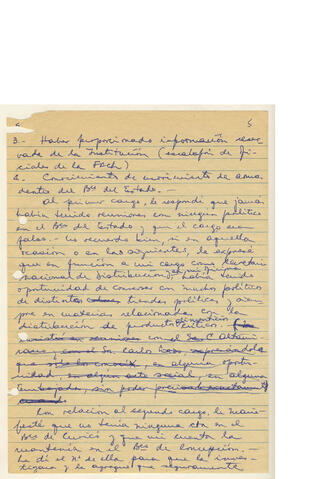 5
3.- Haber proporcionado información reser-
vada de la Institución (escalafón de Ofi-
ciales de la FACh)
4.- Conocimiento de movimiento de
dentro del Bco del Estado.-
Al primer cargo, le respondí que jamás
había tenido reuniones con ningún político
en el Bco del Estado y que el cargo era
falso.- No recuerdo bien, si en aquella
ocasión o en las siguientes, le expresé
que en función a mi cargo como Secretario
Nacional de Distribución, había tenido
oportunidad de conversar con muchos políticos
de distintas tiendas políticas, y siem-
pre en materias relacionadas con la
distribución de productos alimenticios
críticos.
con el Sr. C. Altami-
rano, Sr. Carlos
en alguna oportu-
nidad en algún acto social, en alguna
embajada, sin poder precisar exactamente
Con relación al segundo cargo, le mani-
festé que no tenía ninguna cta en el
Bco de Curicó y que mi cuenta la
mantenía en el Bco de Concepción.-
Le di el Nº de ella para que la inves-
tigara y le agregué que seguramente